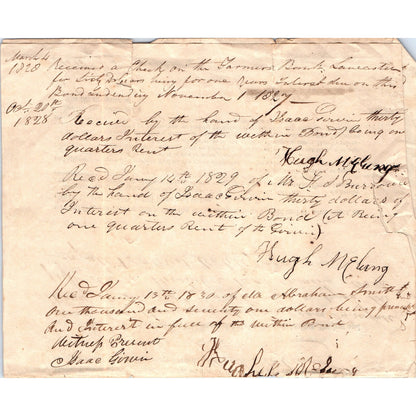 March 4
1828 Received a Check on the Farmers Bank Lancaster
for Sixty Dollars being for one years Interest due on this
Bond ending November 1 1827
Oct. 20th
1828 Receivd by the hand of Isaac Girvin thirty
dollars Interest of the within Bond being one
quarters Rent
Hugh McClung
Recd Janry 14th 1829 of Mr
by the hand of Isaac Girvin thirty dollars of
Interest on the within Bond (it Being
one quarters Rent of the Girvin)
Hugh McClung
Recd Janry 13th 1830 of Abraham Smith
one thousand and seventy one dollars being
and Interest in full of the within Bond
Witness Present
Isaac Girvin
Hugh McClung